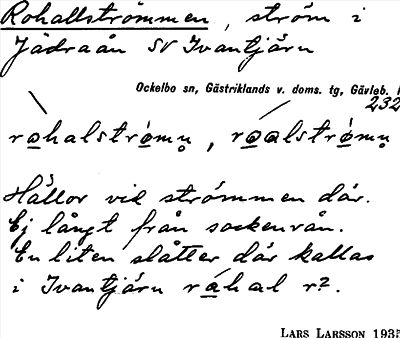 Rohallströmmen, ström i
Jädraån SV Ivantjärn
Ockelbo sn, Gästriklands v. doms. tg, Gävleb. l
232
rohalströmn̥, roalströmn̥
Hällor vid strömmen där.
Ej långt från sockenrån.
En liten slåtter där kallas
i Ivantjärn råhal r?.
LARS LARSSON 1935